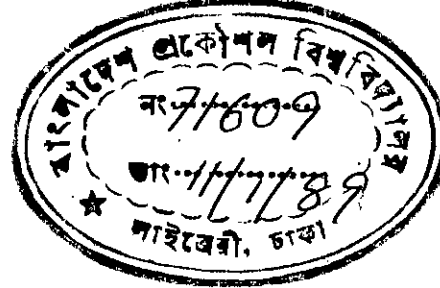 বাংলাদেশ প্রকৌশল বিশ্ববিদ্যালয়
নং 71609
তাং 11/7/89
★ লাইব্রেরী, ঢাকা